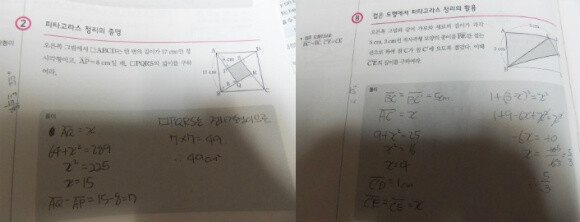 2 피타고라스 정리의 증명
오른쪽 그림에서 □ABCD는 한 변의 길이가 17 cm인 정
사각형이고, AP=8 cm일 때, □PQRS의 넓이를 구하
여라.
A D
8 cm
17 cm
B C
풀이
AQ = x
64+x²=289
x²=225
x=15
AQ-AP=15-8=7
□PQRS는 정사각형이므로
7×7=49
49cm²
8 접은 도형에서 피타고라스 정리의 활용
오른쪽 그림과 같이 가로와 세로의 길이가 각각
5 cm, 3 cm인 직사각형 모양의 종이를 BE를 접는
선으로 하여 점 C가 점 C'에 오도록 접었다. 이때
C'E의 길이를 구하여라.
풀이
BC = BC' = 5cm
AC' = x
9+x²=25
x=4
C'D=1cm
C'E=CE=x
1+(3-x)²=x²
1+9-6x+x²=x²
-6x=-10